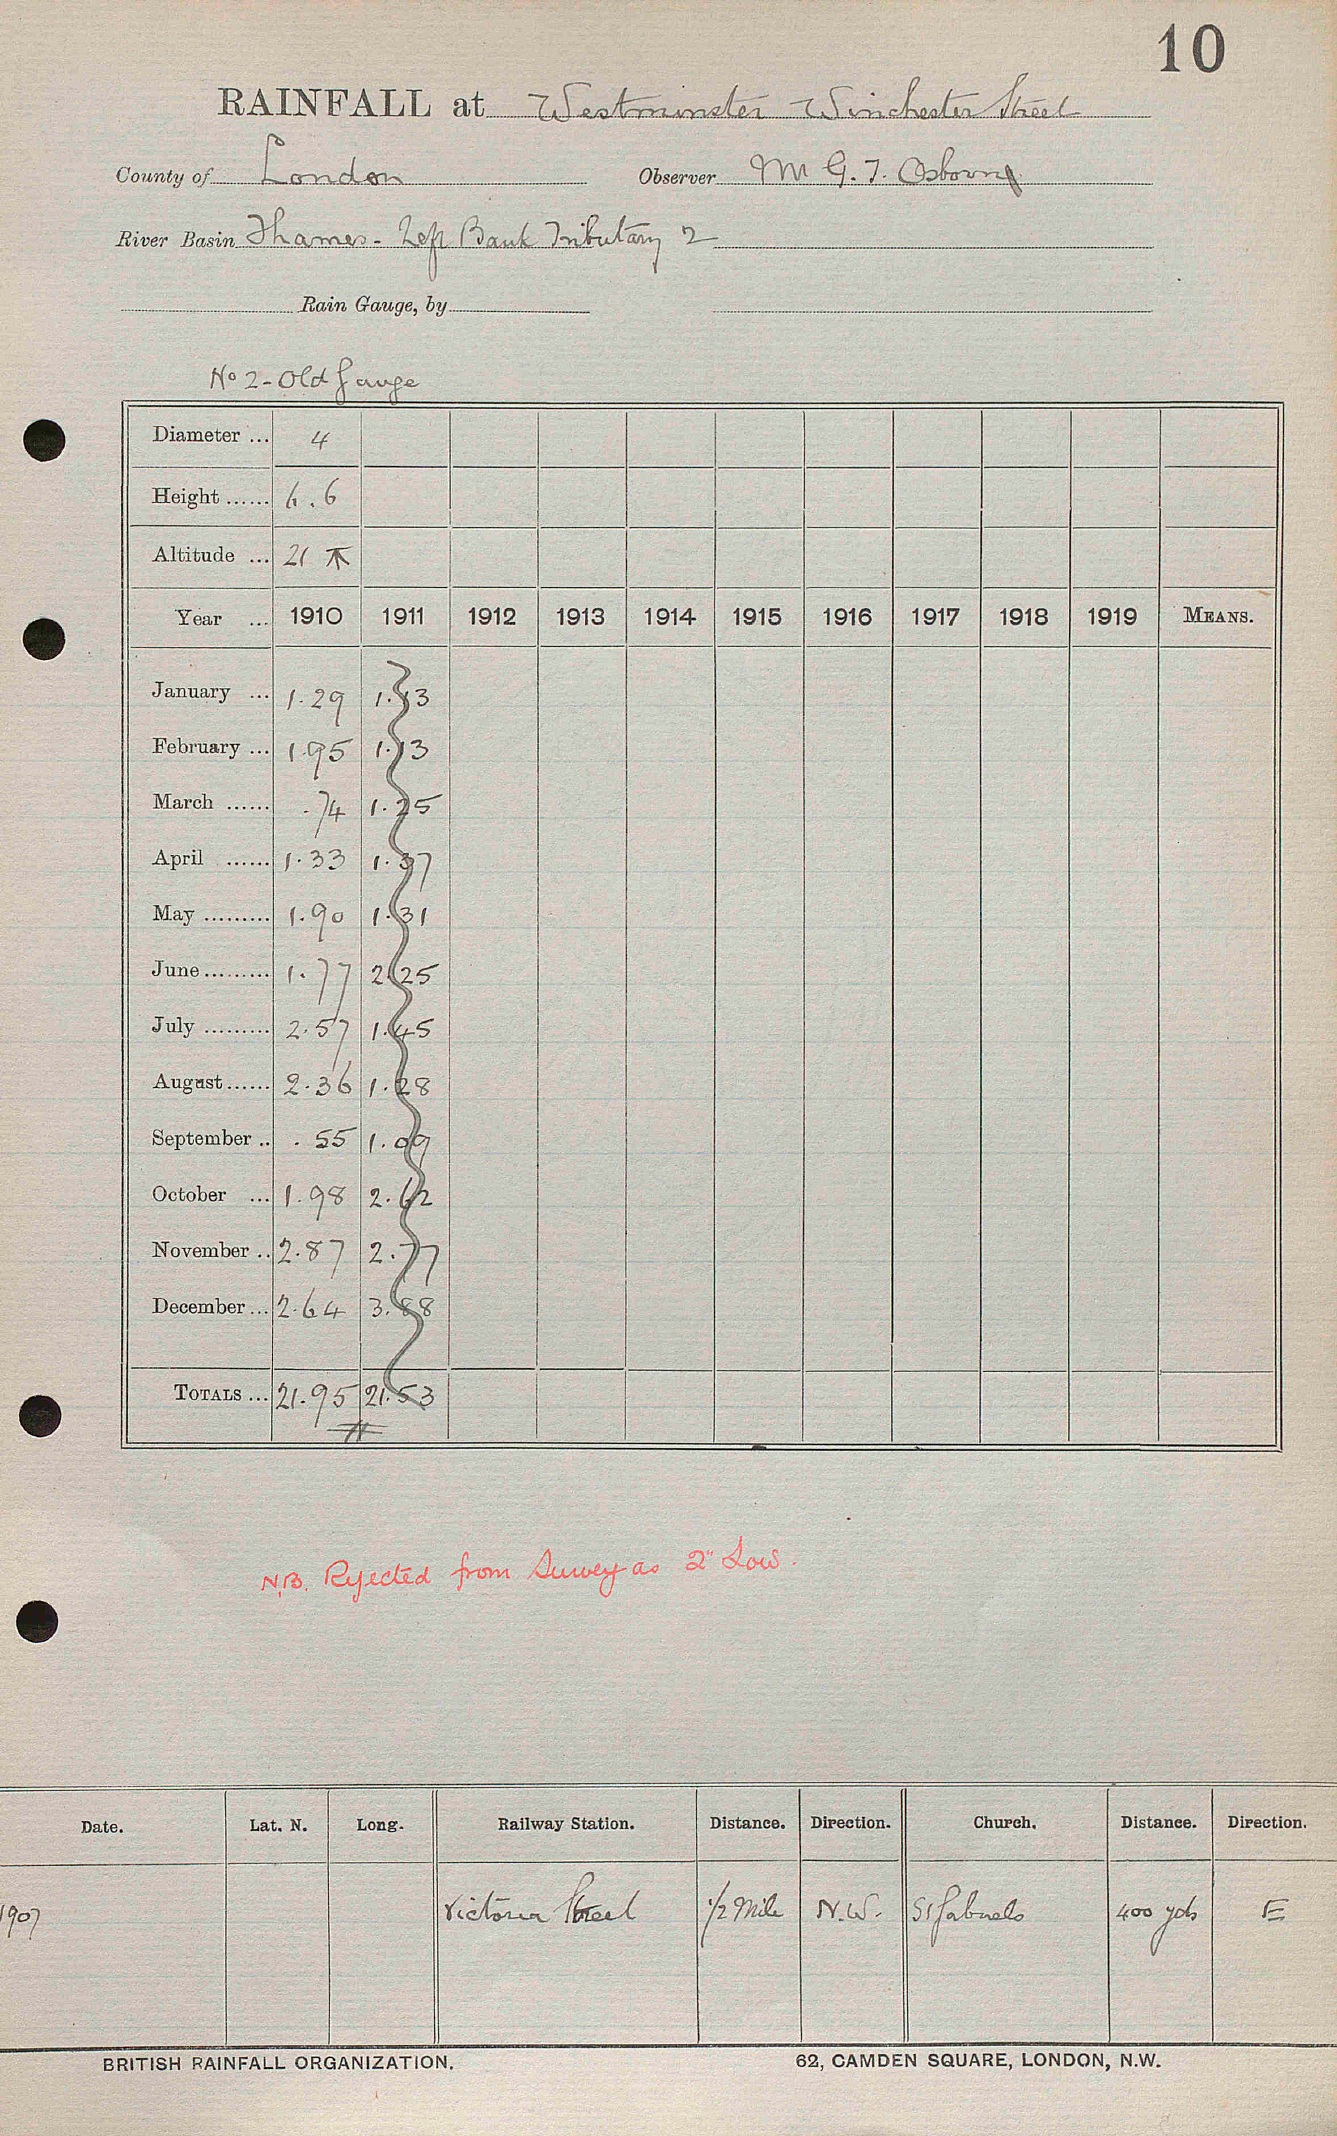 10
RAINFALL at Westminster Winchester Street
County of London Observer Mr G. J. Osborne
River Basin Thames - Left Bank Tributary 2
Rain Gauge, by
No 2 - Old Gauge
Diameter ... 4
Height ...... 6.6
Altitude ... 21
Year ... 1910 1911 1912 1913 1914 1915 1916 1917 1918 1919 MEANS.
January ... 1.29 1.13
February ... 1.95 1.13
March ...... .74 1.25
April ...... 1.33 1.37
May ......... 1.90 1.31
June ......... 1.77 2.25
July ......... 2.57 1.45
August ...... 2.36 1.28
September .. .55 1.09
October ... 1.98 2.62
November .. 2.87 2.77
December ... 2.64 3.88
TOTALS ... 21.95 21.53
N.B. Rejected from Survey as 2" Low.
Date. Lat. N. Long. Railway Station. Distance. Direction. Church. Distance. Direction.
1907 Victoria Street 1/2 Mile N.W. St Gabriels 400 yds E
BRITISH RAINFALL ORGANIZATION. 62, CAMDEN SQUARE, LONDON, N.W.